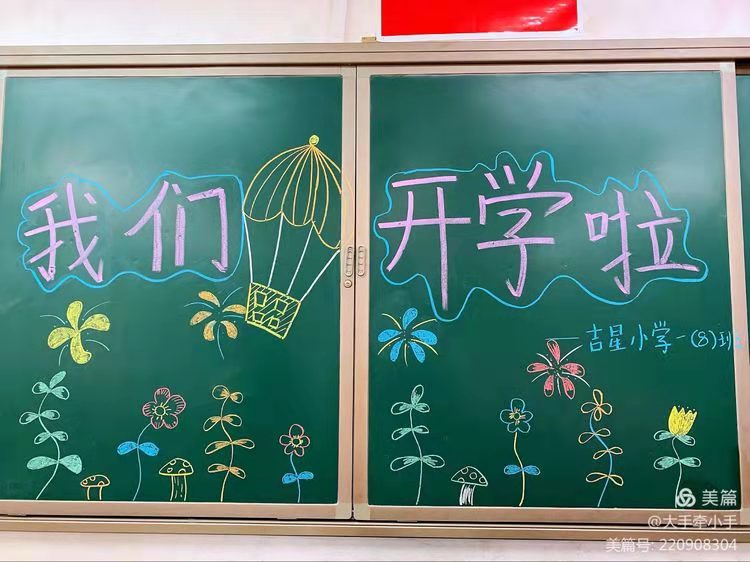 我们开学啦
吉星小学一(8)班
美篇
@大手牵小手
美篇号: 220908304